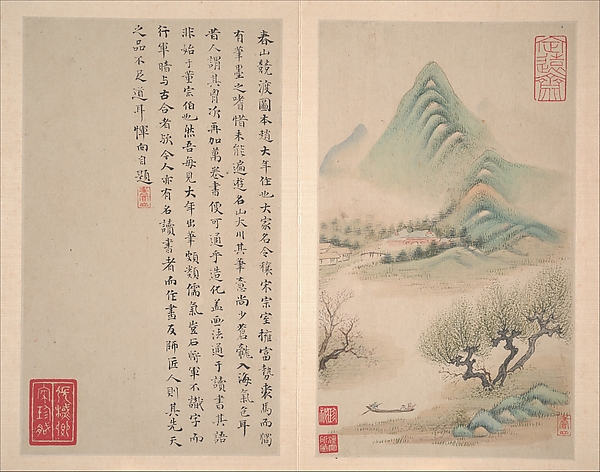 春山競渡圖本趙大年作也大家名令穰宋宗室擁富勢裘馬而獨
有筆墨之嗜惜未能遍遊名山大川其筆意尚少蒼龍入海氣色耳
昔人謂其胷次再加萬卷書便可通乎造化蓋画法通于讀書其語
非始于董宗伯也然吾每見大年出筆頗類儒氣豈右將軍不識字而
行軍暗与古合者歟今人亦有名讀書者而作畫反師匠人則其先天
之品不足道耳惲向自題